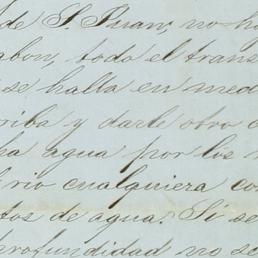 de S. Juan, no ha
abon, todo el trans
se halla en med
riba y darle otro c
ha agua por los
rio cualquiera co
tos de agua. Si se
profundidad no se